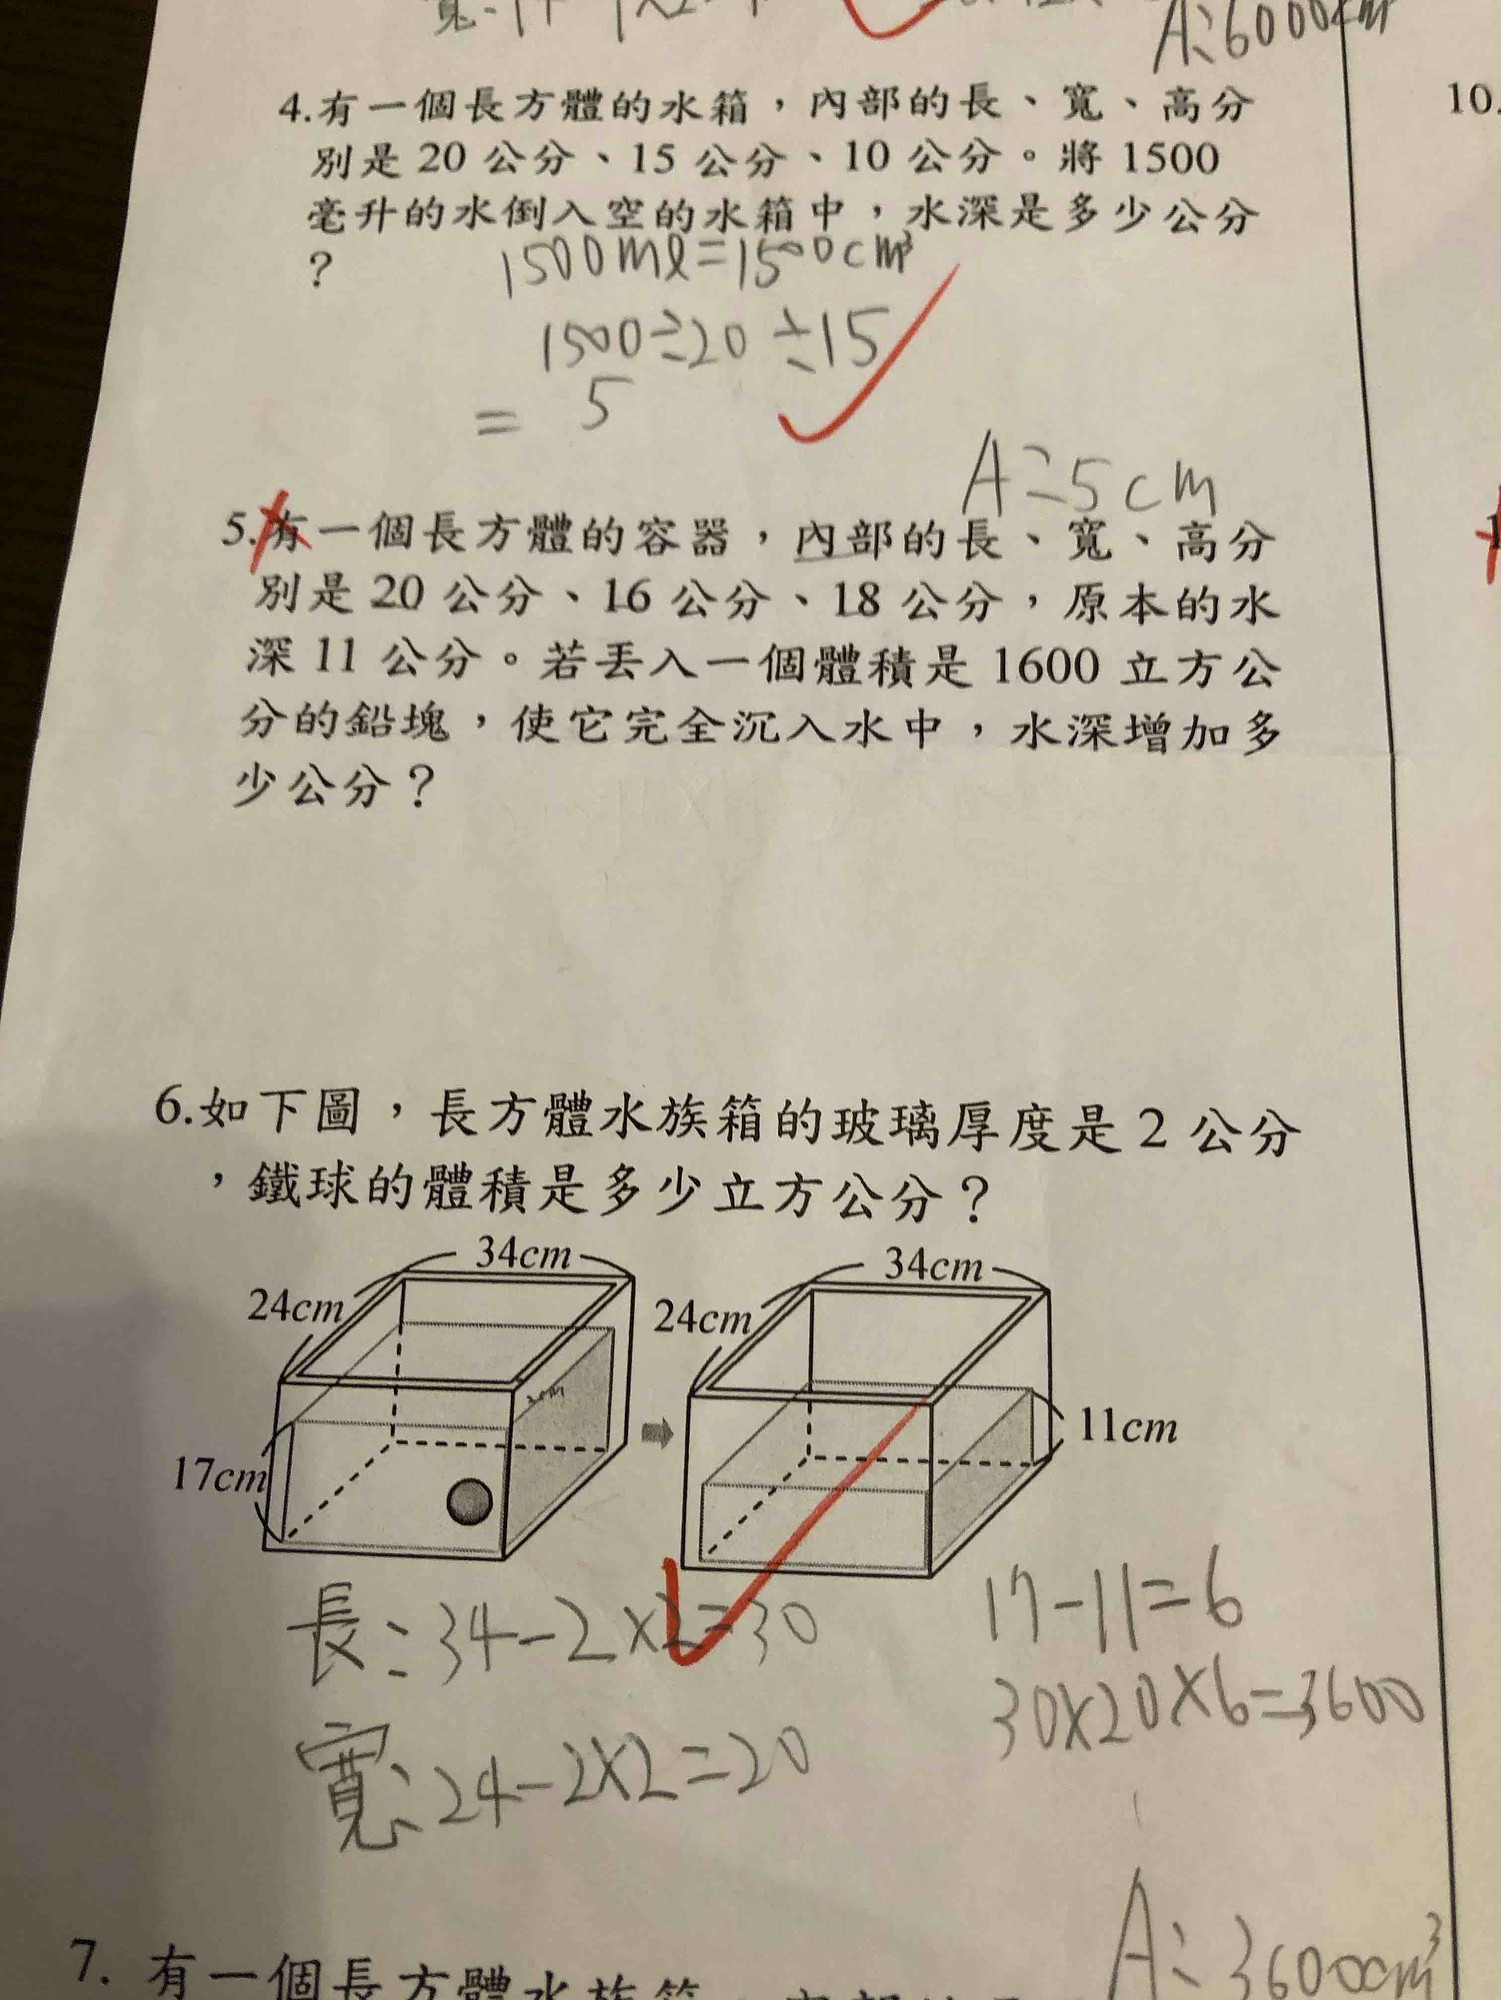 A:6000cm³
4.有一個長方體的水箱，內部的長、寬、高分
10.
別是 20 公分、15 公分、10 公分。將 1500
毫升的水倒入空的水箱中，水深是多少公分
？
1500ml=1500cm³
1500÷20÷15
= 5
A:5cm
5.有一個長方體的容器，內部的長、寬、高分
別是 20 公分、16 公分、18 公分，原本的水
深 11 公分。若丟入一個體積是 1600 立方公
分的鉛塊，使它完全沉入水中，水深增加多
少公分？
6.如下圖，長方體水族箱的玻璃厚度是 2 公分
，鐵球的體積是多少立方公分？
34cm
24cm
2cm
17cm
34cm
24cm
11cm
長:34-2×2=30
17-11=6
30×20×6=3600
寬:24-2×2=20
A:3600cm³
7. 有一個長方體水族箱